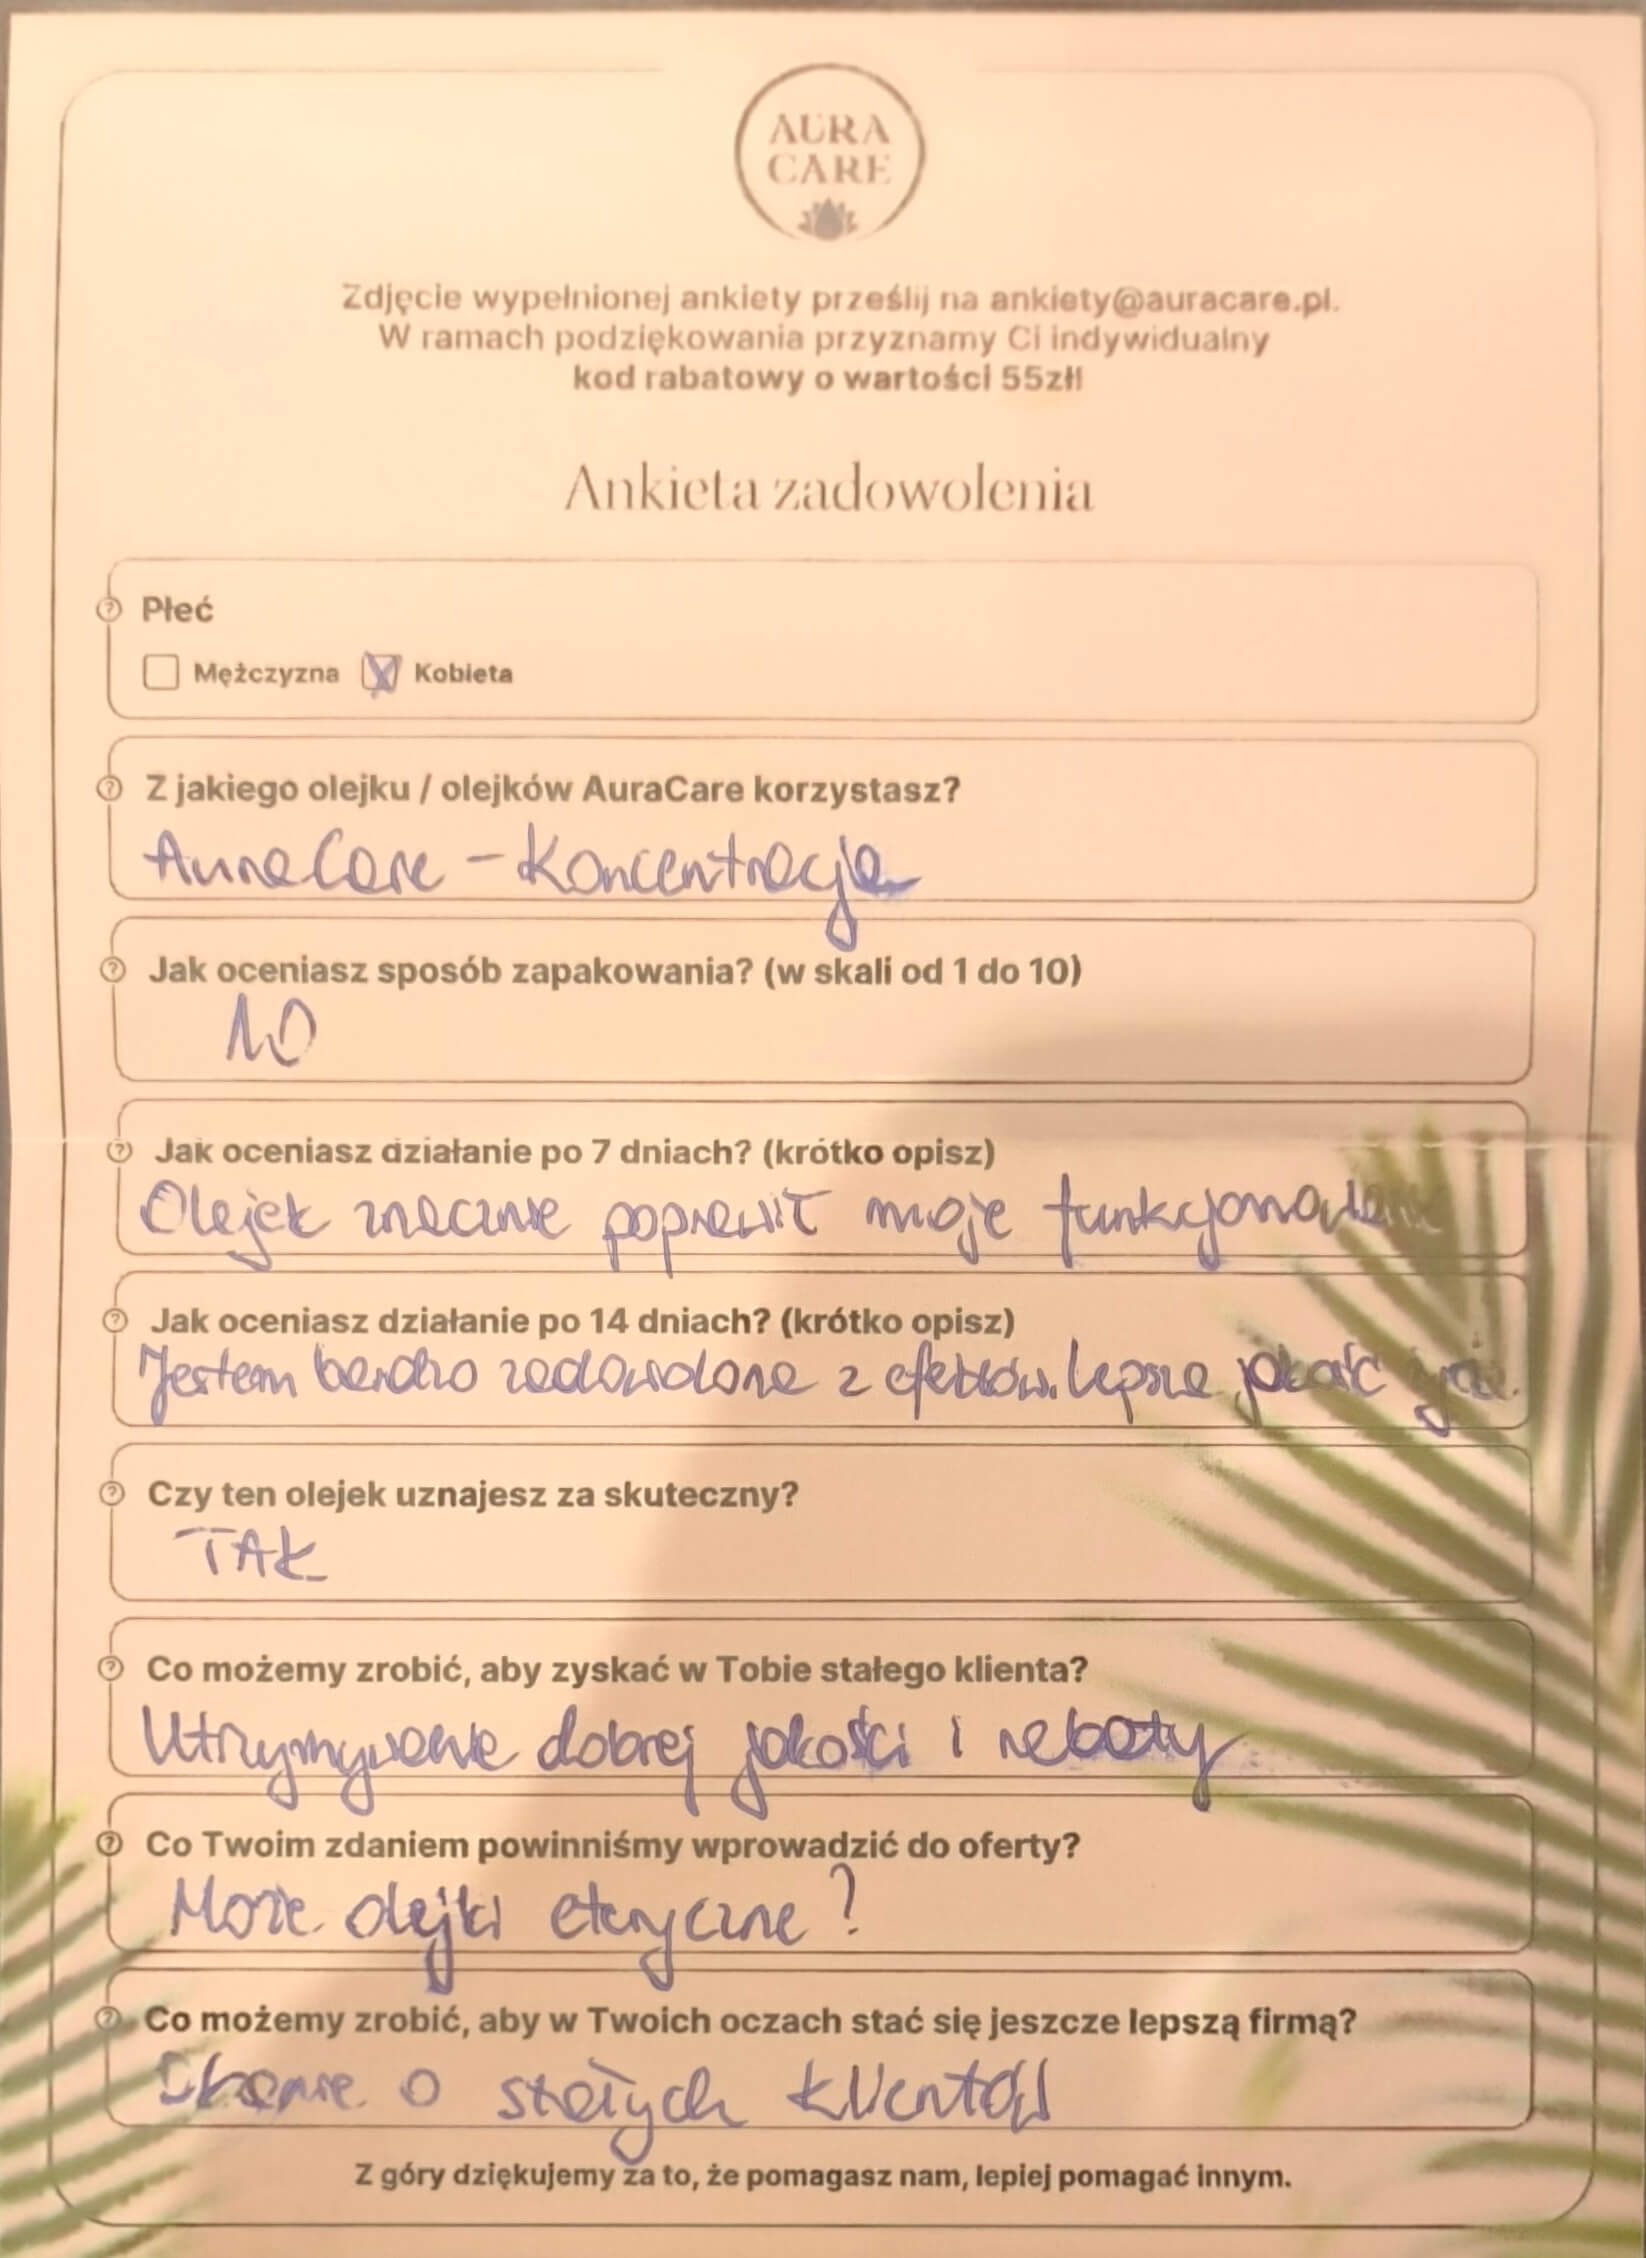 AURA
CARE
Zdjęcie wypełnionej ankiety prześlij na ankiety@auracare.pl.
W ramach podziękowania przyznamy Ci indywidualny
kod rabatowy o wartości 55zł!
Ankieta zadowolenia
Płeć
Mężczyzna Kobieta
Z jakiego olejku / olejków AuraCare korzystasz?
AuraCare - Koncentracja
Jak oceniasz sposób zapakowania? (w skali od 1 do 10)
10
Jak oceniasz działanie po 7 dniach? (krótko opisz)
Olejek znacznie poprawił moje funkcjonowanie
Jak oceniasz działanie po 14 dniach? (krótko opisz)
Jestem bardzo zadowolona z efektów. lepsza jakość życia.
Czy ten olejek uznajesz za skuteczny?
TAK
Co możemy zrobić, aby zyskać w Tobie stałego klienta?
Utrzymywanie dobrej jakości i rabaty
Co Twoim zdaniem powinniśmy wprowadzić do oferty?
Może olejki eteryczne?
Co możemy zrobić, aby w Twoich oczach stać się jeszcze lepszą firmą?
Dbanie o stałych klientów
Z góry dziękujemy za to, że pomagasz nam, lepiej pomagać innym.